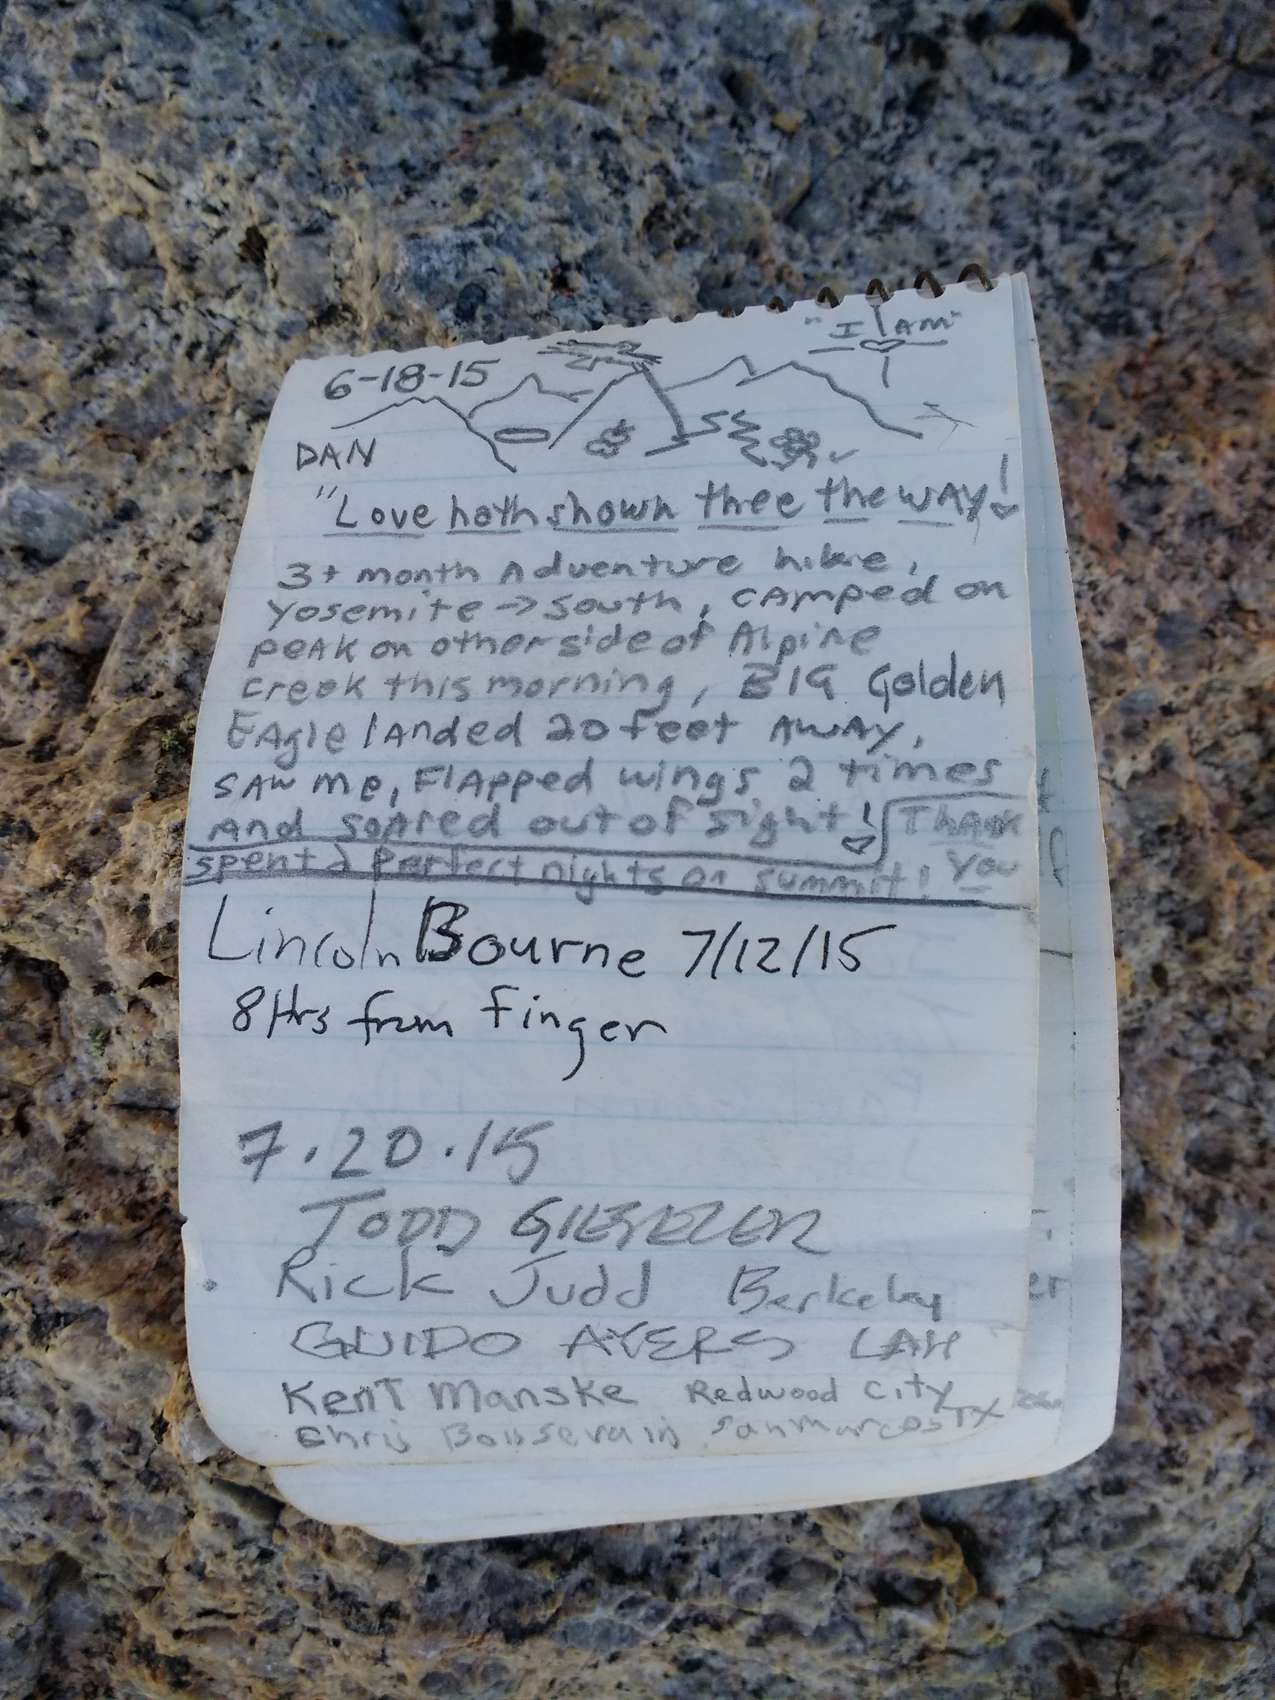 "I AM"
6-18-15
DAN
"Love hath shown thee the WAY!
3+ month Adventure hike,
Yosemite → South, CAMPed on
PEAK on other side of Alpine
creek this morning, BIG Golden
EAgle lAnded 20 feet AWAY,
SAW ME, FlAPPed wings 2 times
And soAred out of sight! ThAnk
spent 2 Perfect nights on summit! You
Lincoln Bourne 7/12/15
8 Hrs from Finger
7.20.15
TODD
Rick Judd Berkeley
GUIDO AYERS LAH
KenT Manske Redwood City
Chris San Marcos TX
er